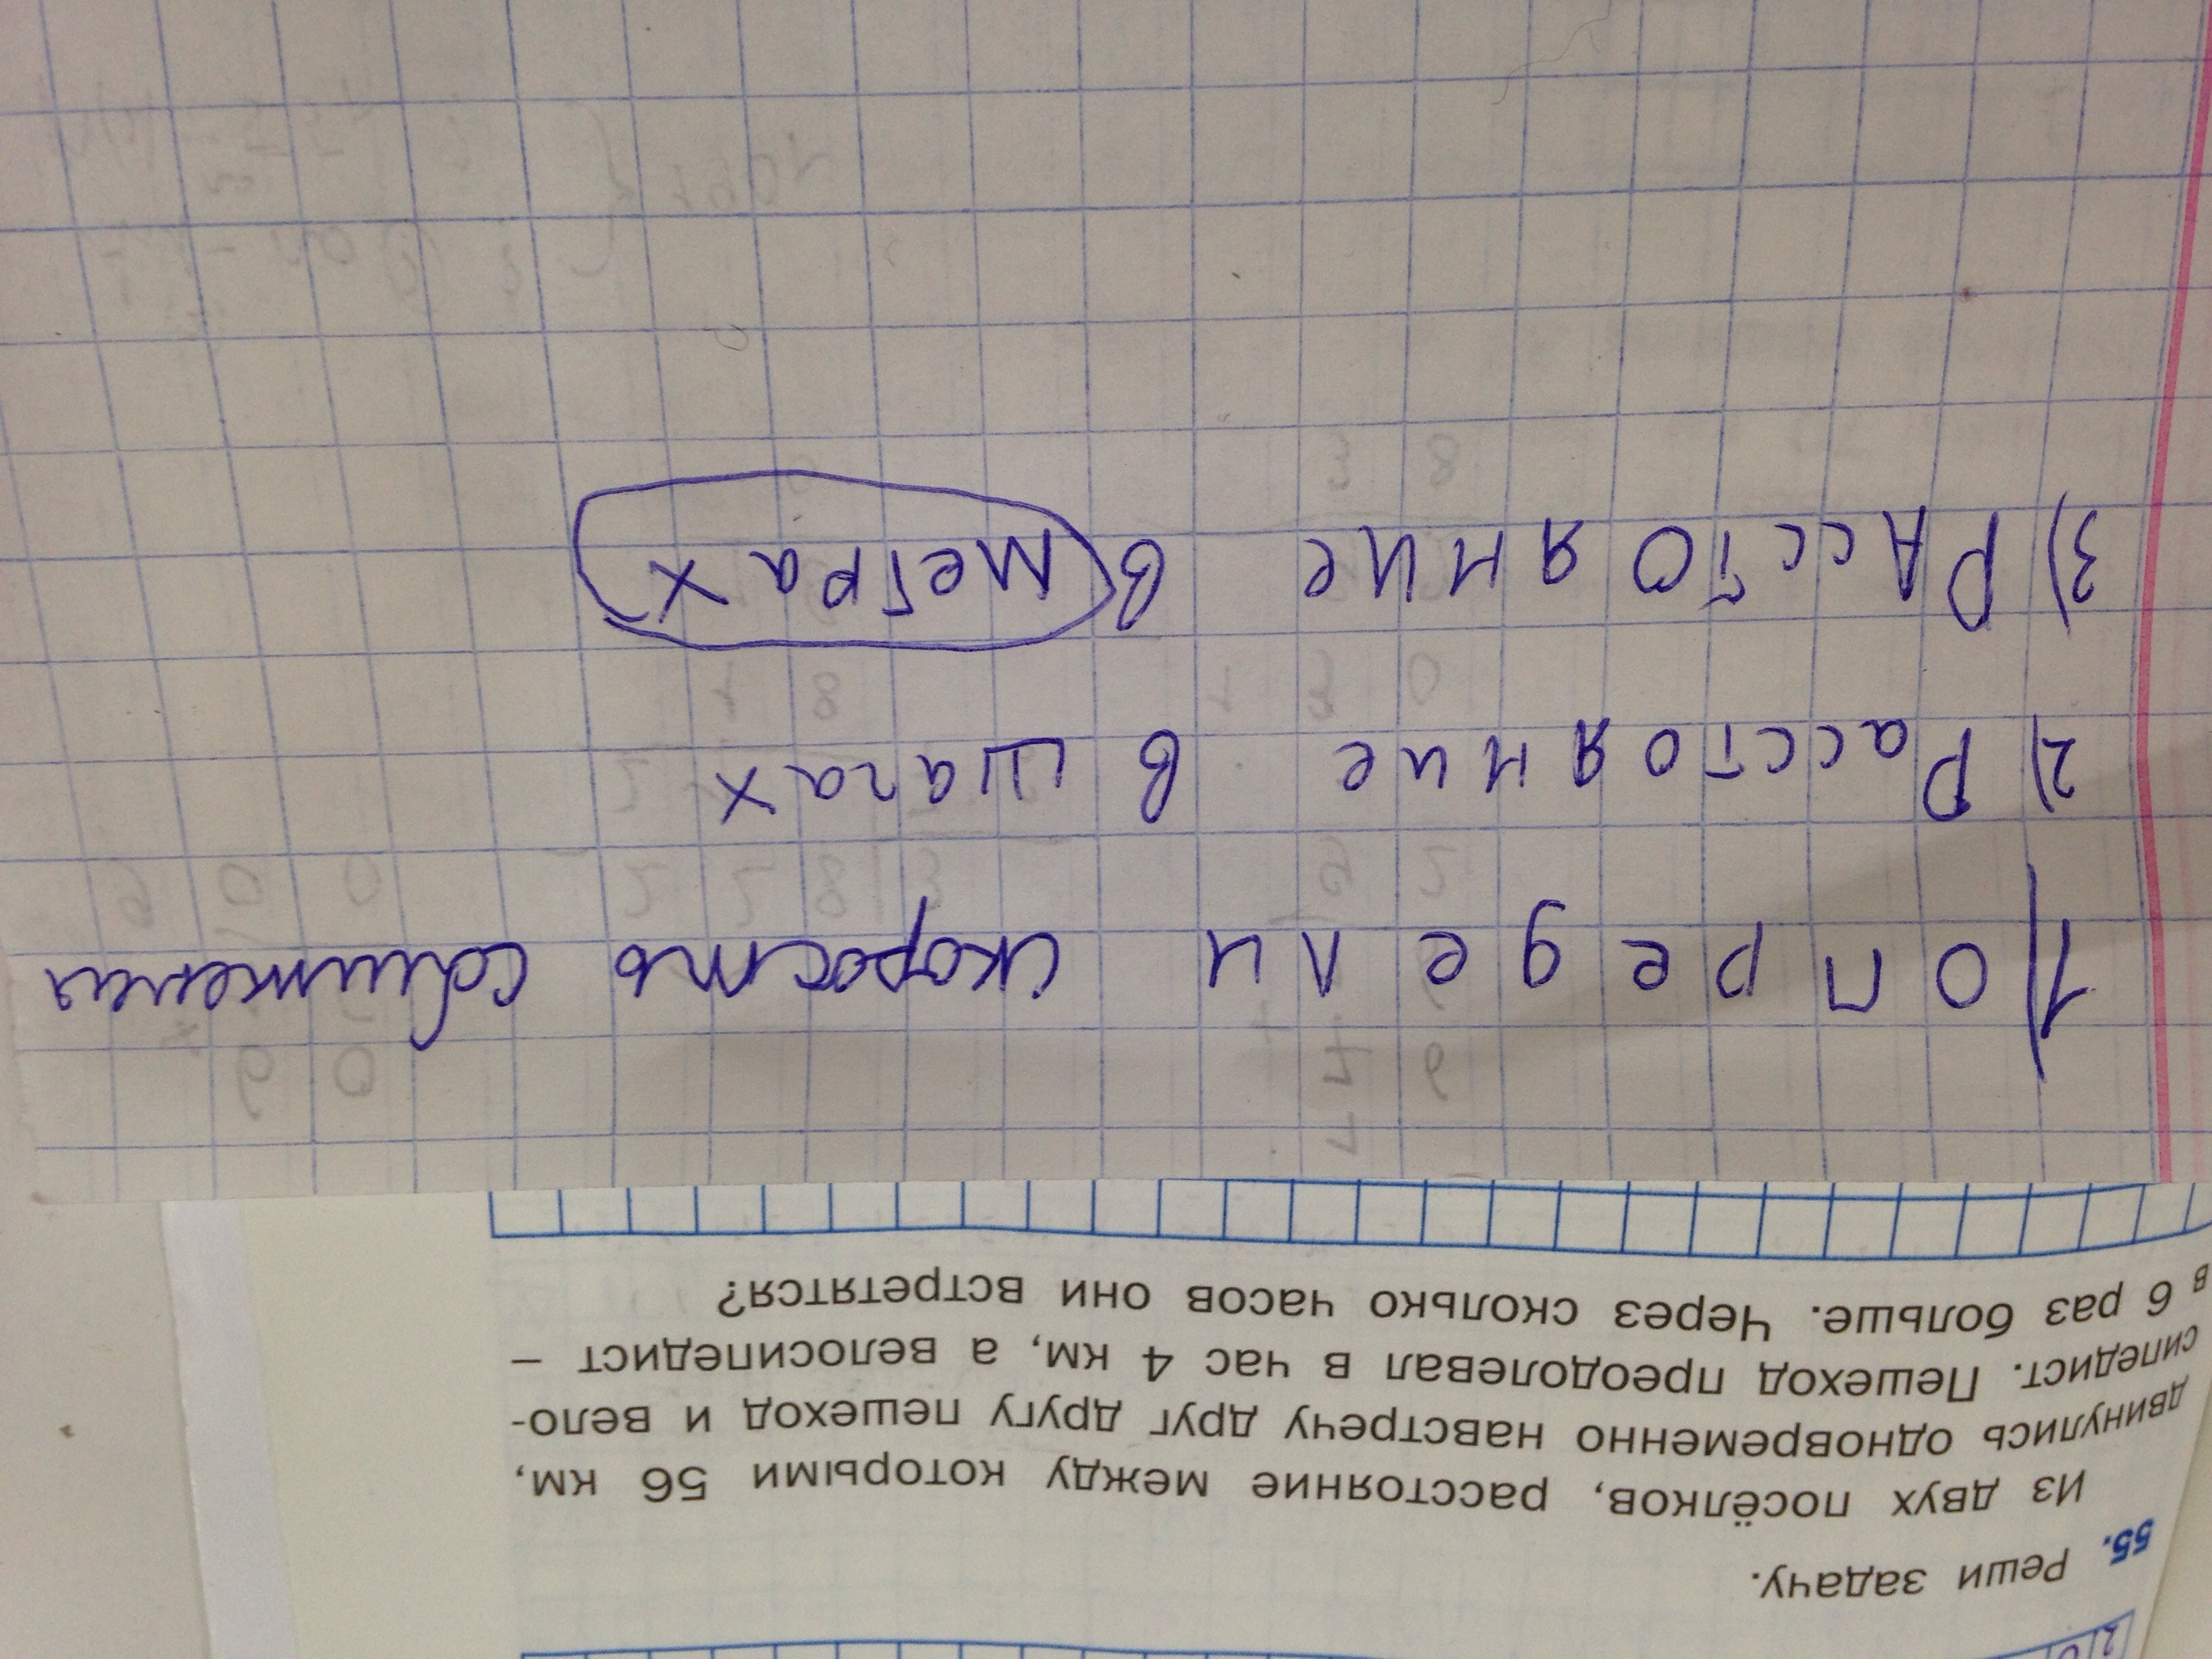 55. Реши задачу.
Из двух посёлков, расстояние между которыми 56 км,
двинулись одновременно навстречу друг другу пешеход и вело-
сипедист. Пешеход преодолевал в час 4 км, а велосипедист –
в 6 раз больше. Через сколько часов они встретятся?
1) определи скорость сближения
2) Расстояние в шагах
3) РАсстояние в метрах